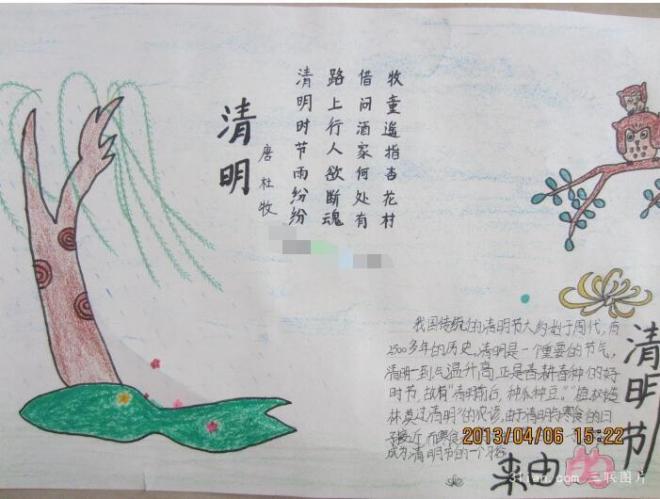 清明
唐 杜牧
清明时节雨纷纷
路上行人欲断魂
借问酒家何处有
牧童遥指杏花村
我国传统的清明节大约始于周代,有
2500多年的历史。清明是一个重要的节气,
清明一到气温升高,正是春耕春种的好
时节,故有"清明前后,种瓜种豆。""植树造
林莫过清明"的农谚。由于清明与寒食的日
子接近,而寒食
成为清明节的一个习俗
清明节
的由来
2013/04/06 15:22
3lian.com 三联图片